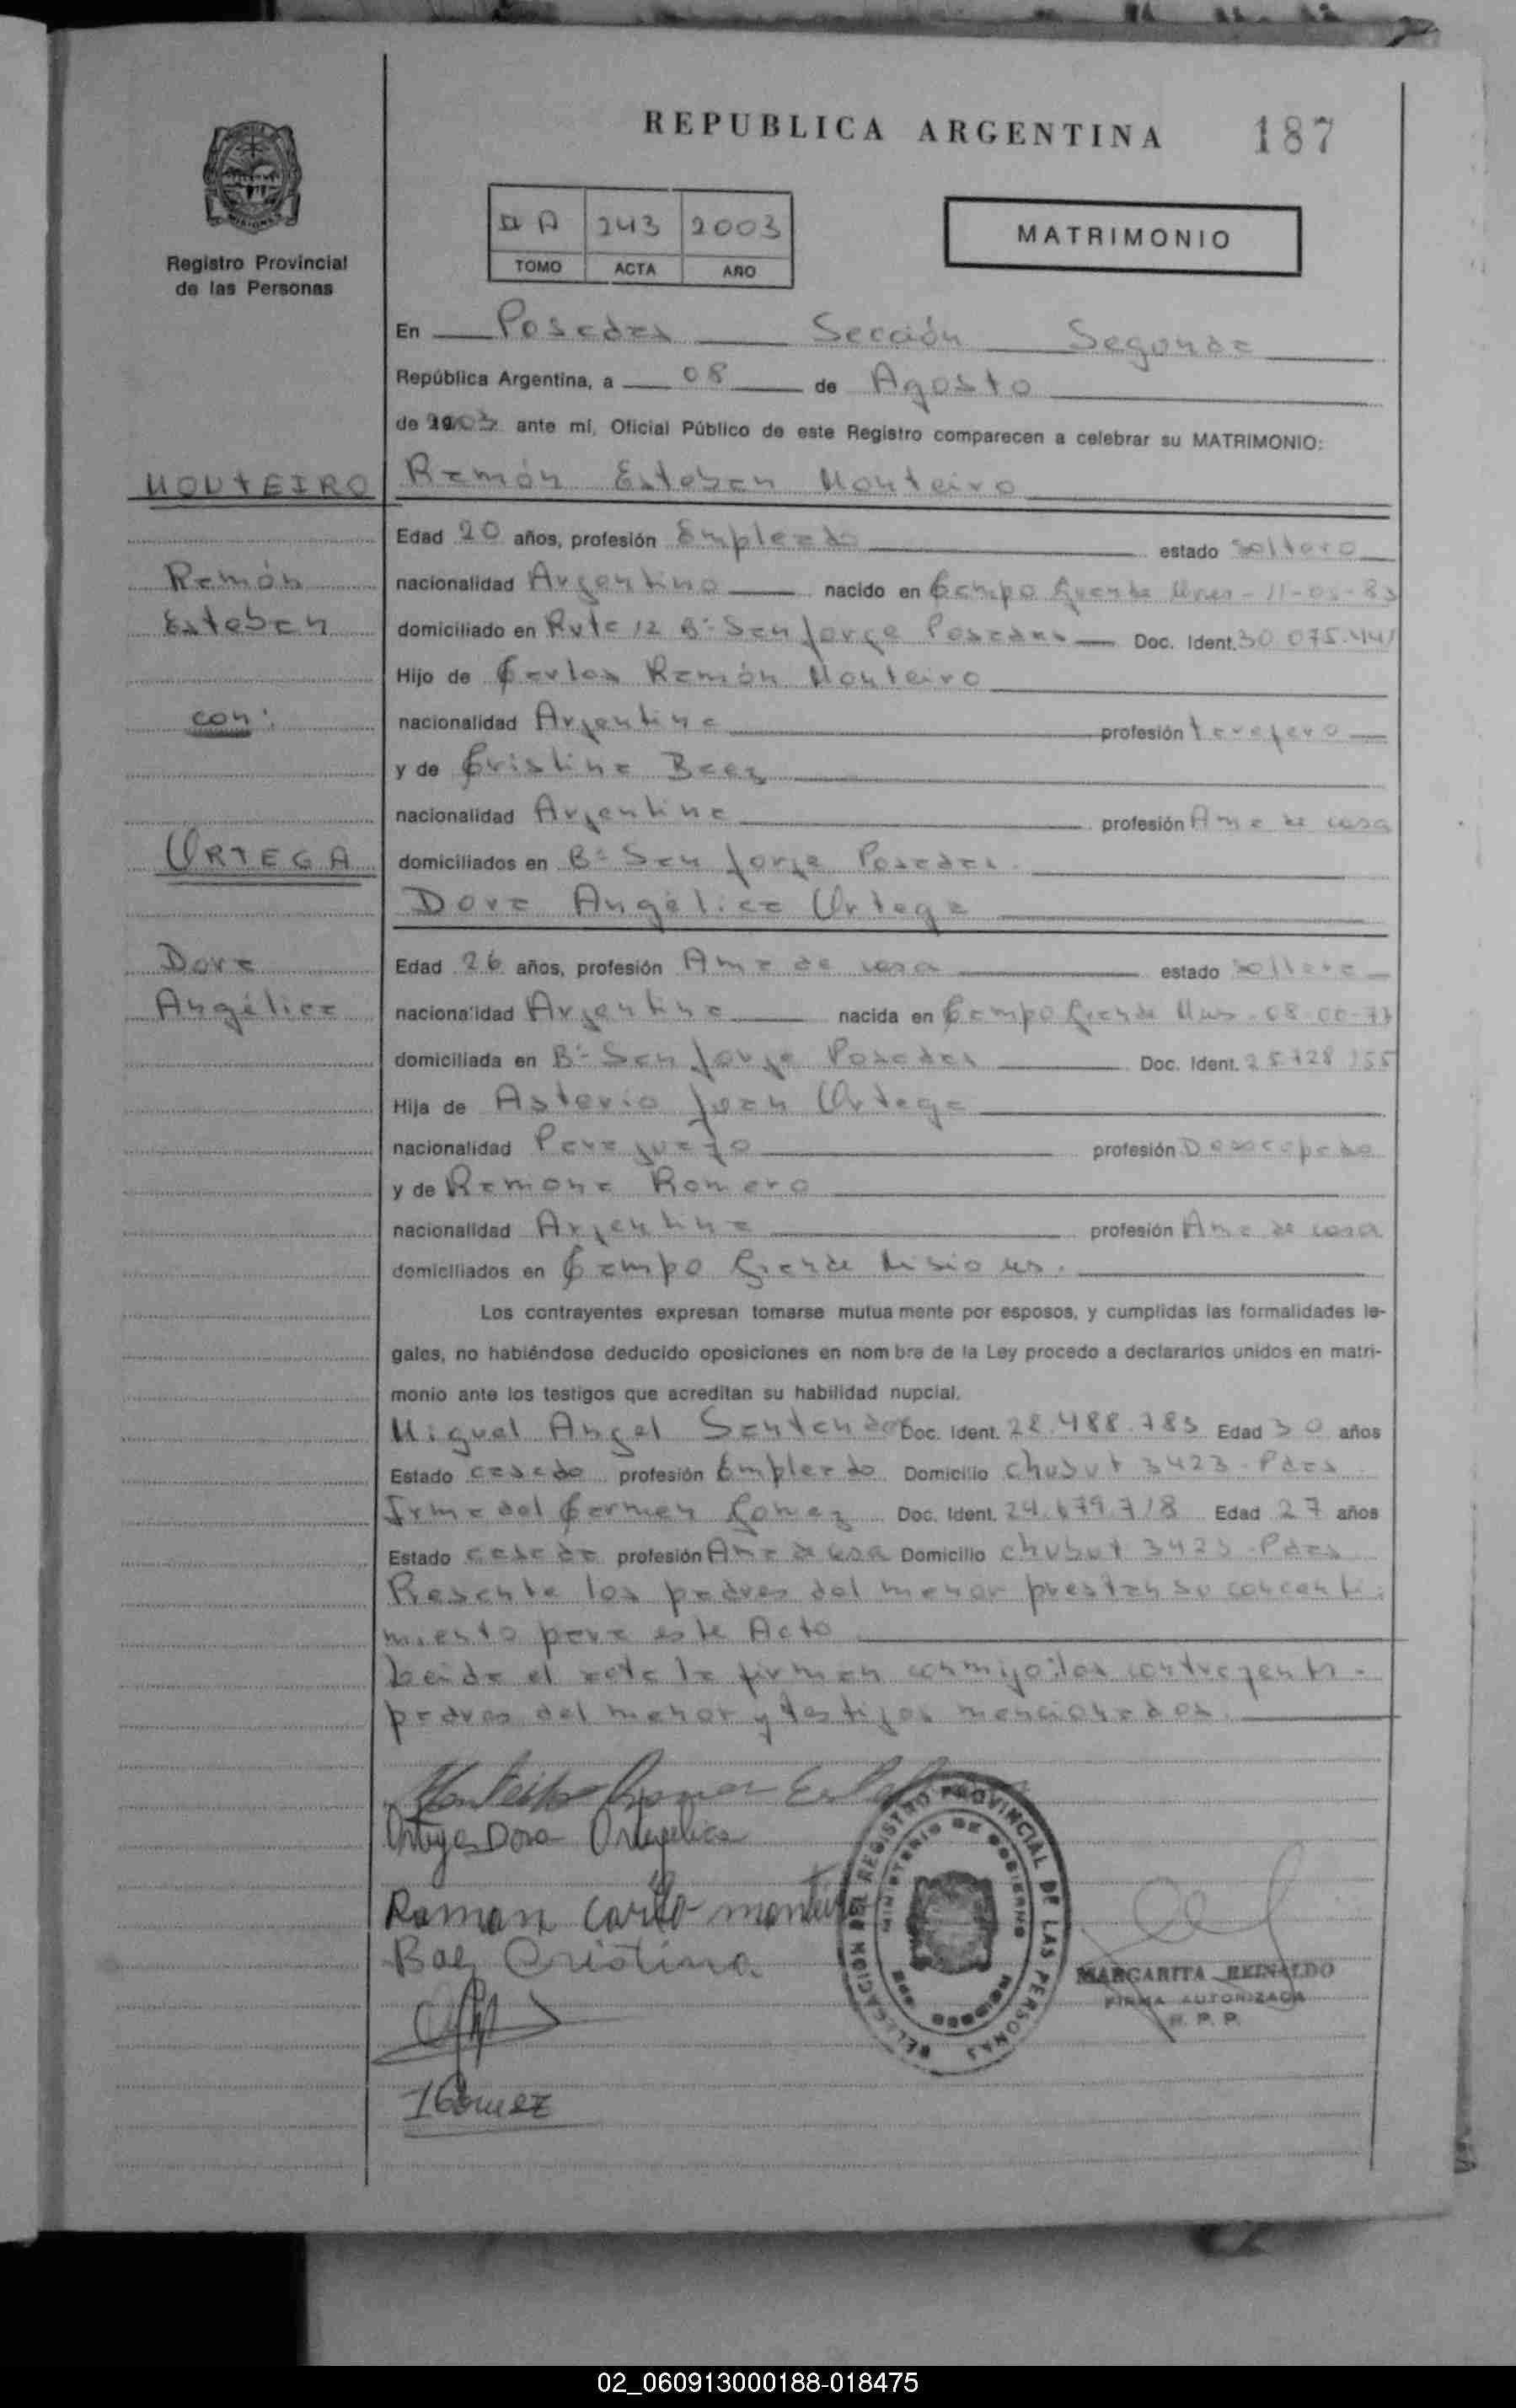 REPUBLICA ARGENTINA 187
Registro Provincial
de las Personas
II A 243 2003
TOMO ACTA AÑO
MATRIMONIO
En Posadas Sección Segunda
República Argentina, a 08 de Agosto
de 2003 ante mí, Oficial Público de este Registro comparecen a celebrar su MATRIMONIO:
MONTEIRO Ramón Esteban Monteiro
Edad 20 años, profesión Empleado estado soltero
Ramón nacionalidad Argentino nacido en Campo Grande Mnes - 11-05-83
Esteban domiciliado en Ruta 12 Bº San Jorge Posadas Doc. Ident. 30.075.441
Hijo de Carlos Ramón Monteiro
con: nacionalidad Argentina profesión tarefero
y de Cristina Baez
nacionalidad Argentina profesión Ama de casa
ORTEGA domiciliados en Bº San Jorge Posadas.
Dora Angélica Ortega
Dora Edad 26 años, profesión Ama de casa estado soltera
Angélica nacionalidad Argentina nacida en Campo Grande Mns - 08
domiciliada en Bº San Jorge Posadas Doc. Ident. 25.728
Hija de Asterio Juan Ortega
nacionalidad Paraguayo profesión Desocupado
y de Ramona Romero
nacionalidad Argentina profesión Ama de casa
domiciliados en Campo Grande Misiones.
Los contrayentes expresan tomarse mutua mente por esposos, y cumplidas las formalidades le-
gales, no habiéndose deducido oposiciones en nom bre de la Ley procedo a declararlos unidos en matri-
monio ante los testigos que acreditan su habilidad nupcial.
Miguel Angel Santander Doc. Ident. 22.488.783 Edad 30 años
Estado casado profesión Empleado Domicilio chubut 3423 - Pdas
Irma del Carmen Gomez Doc. Ident. 24.679.718 Edad 27 años
Estado casada profesión Ama de casa Domicilio chubut 3423 - Pdas
Presente los padres del menor prestan su concenti-
miento para este Acto
Leida el acta la firman conmigo: los contrayentes -
padres del menor y testigos mencionados.
Monteiro Ramon Esteban
Ortega Dora Angelica
Ramon Carlo monteiro
Baez Cristina
IGomez
DELEGACION DEL REGISTRO PROVINCIAL DE LAS PERSONAS
MINISTERIO DE GOBIERNO
MARGARITA REINALDO
FIRMA AUTORIZADA
R. P. P.
02_060913000188-018475